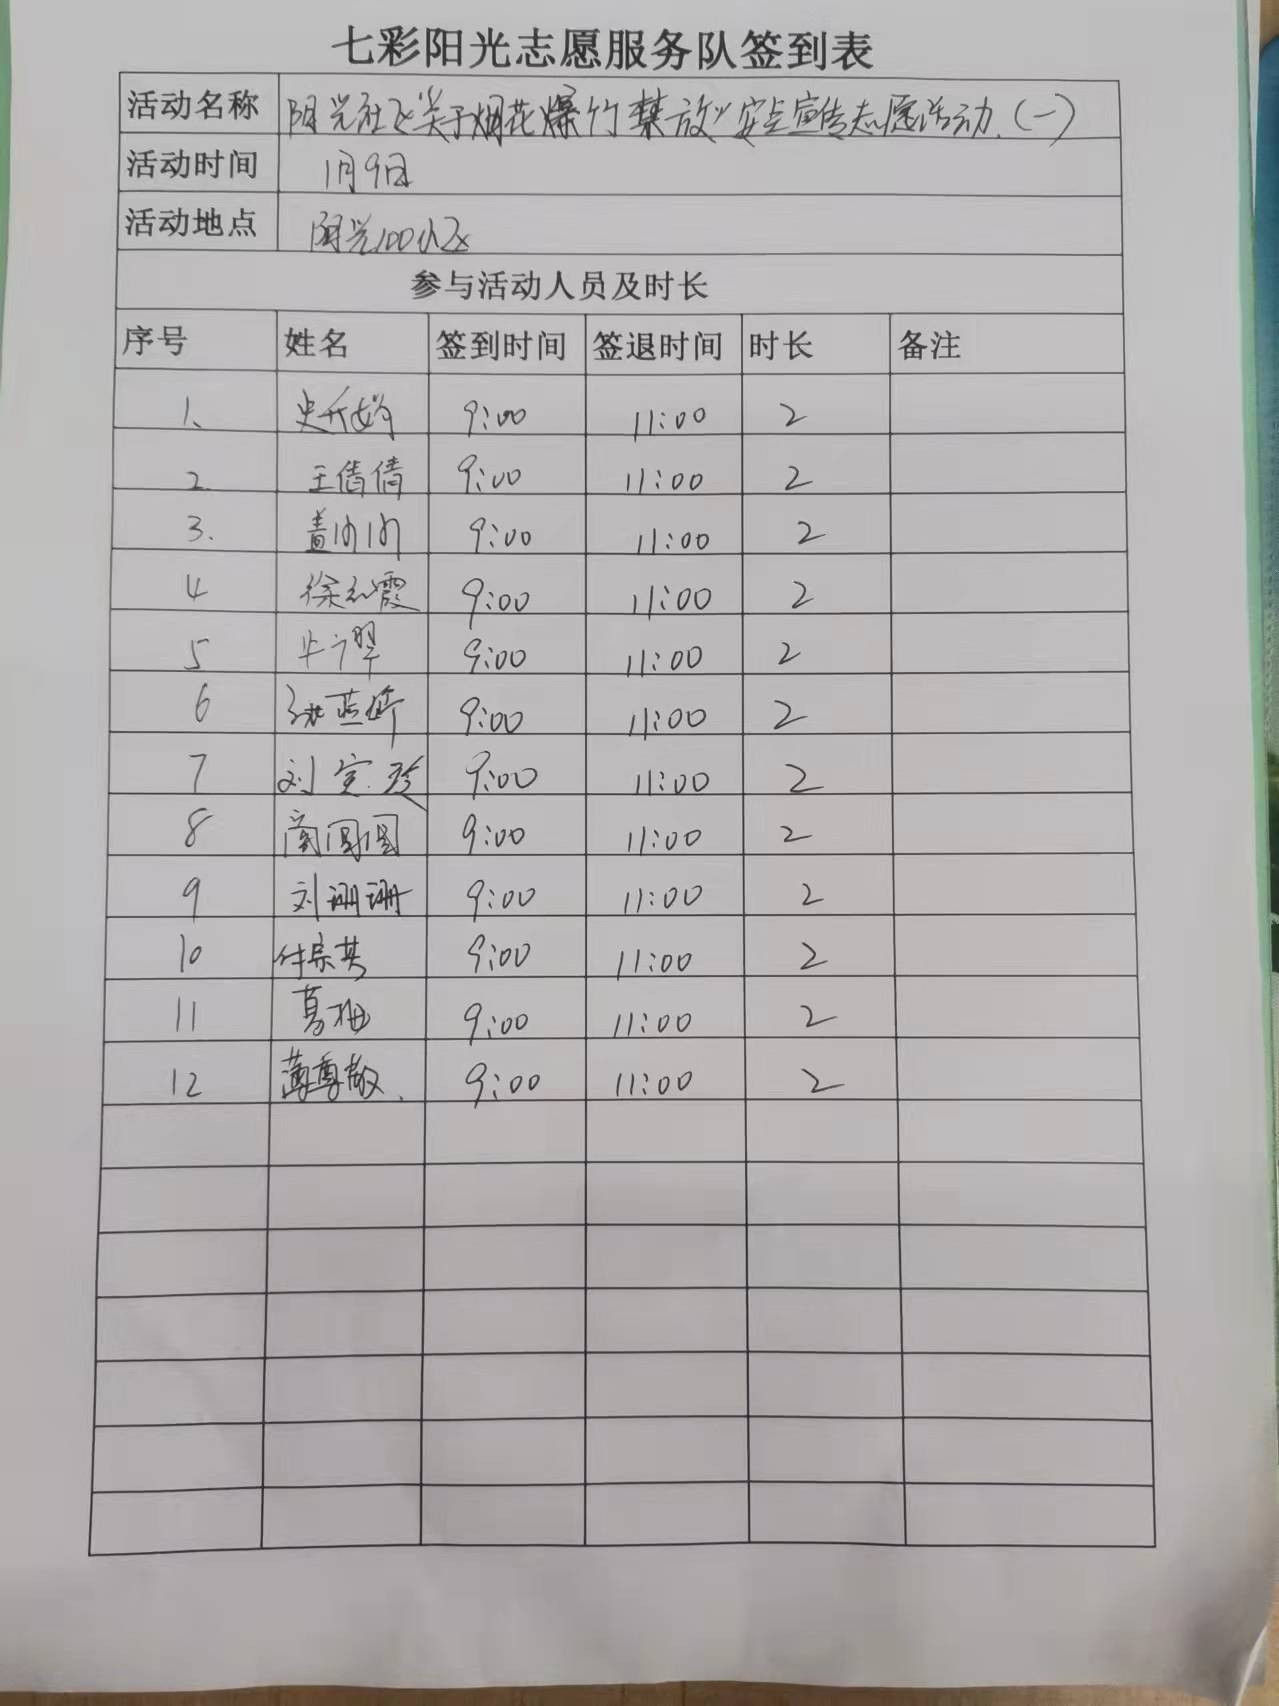 七彩阳光志愿服务队签到表
活动名称 阳光社区“关于烟花爆竹禁放”安全宣传志愿活动.(一)
活动时间 1月9日
活动地点 阳光100小区
参与活动人员及时长
序号 姓名 签到时间 签退时间 时长 备注
1、 9:00 11:00 2
2. 王倩倩 9:00 11:00 2
3. 9:00 11:00 2
4 9:00 11:00 2
5 9:00 11:00 2
6 9:00 11:00 2
7 9:00 11:00 2
8 9:00 11:00 2
9 刘珊珊 9:00 11:00 2
10 付宗英 9:00 11:00 2
11 葛梅 9:00 11:00 2
12 薄尊敬. 9:00 11:00 2